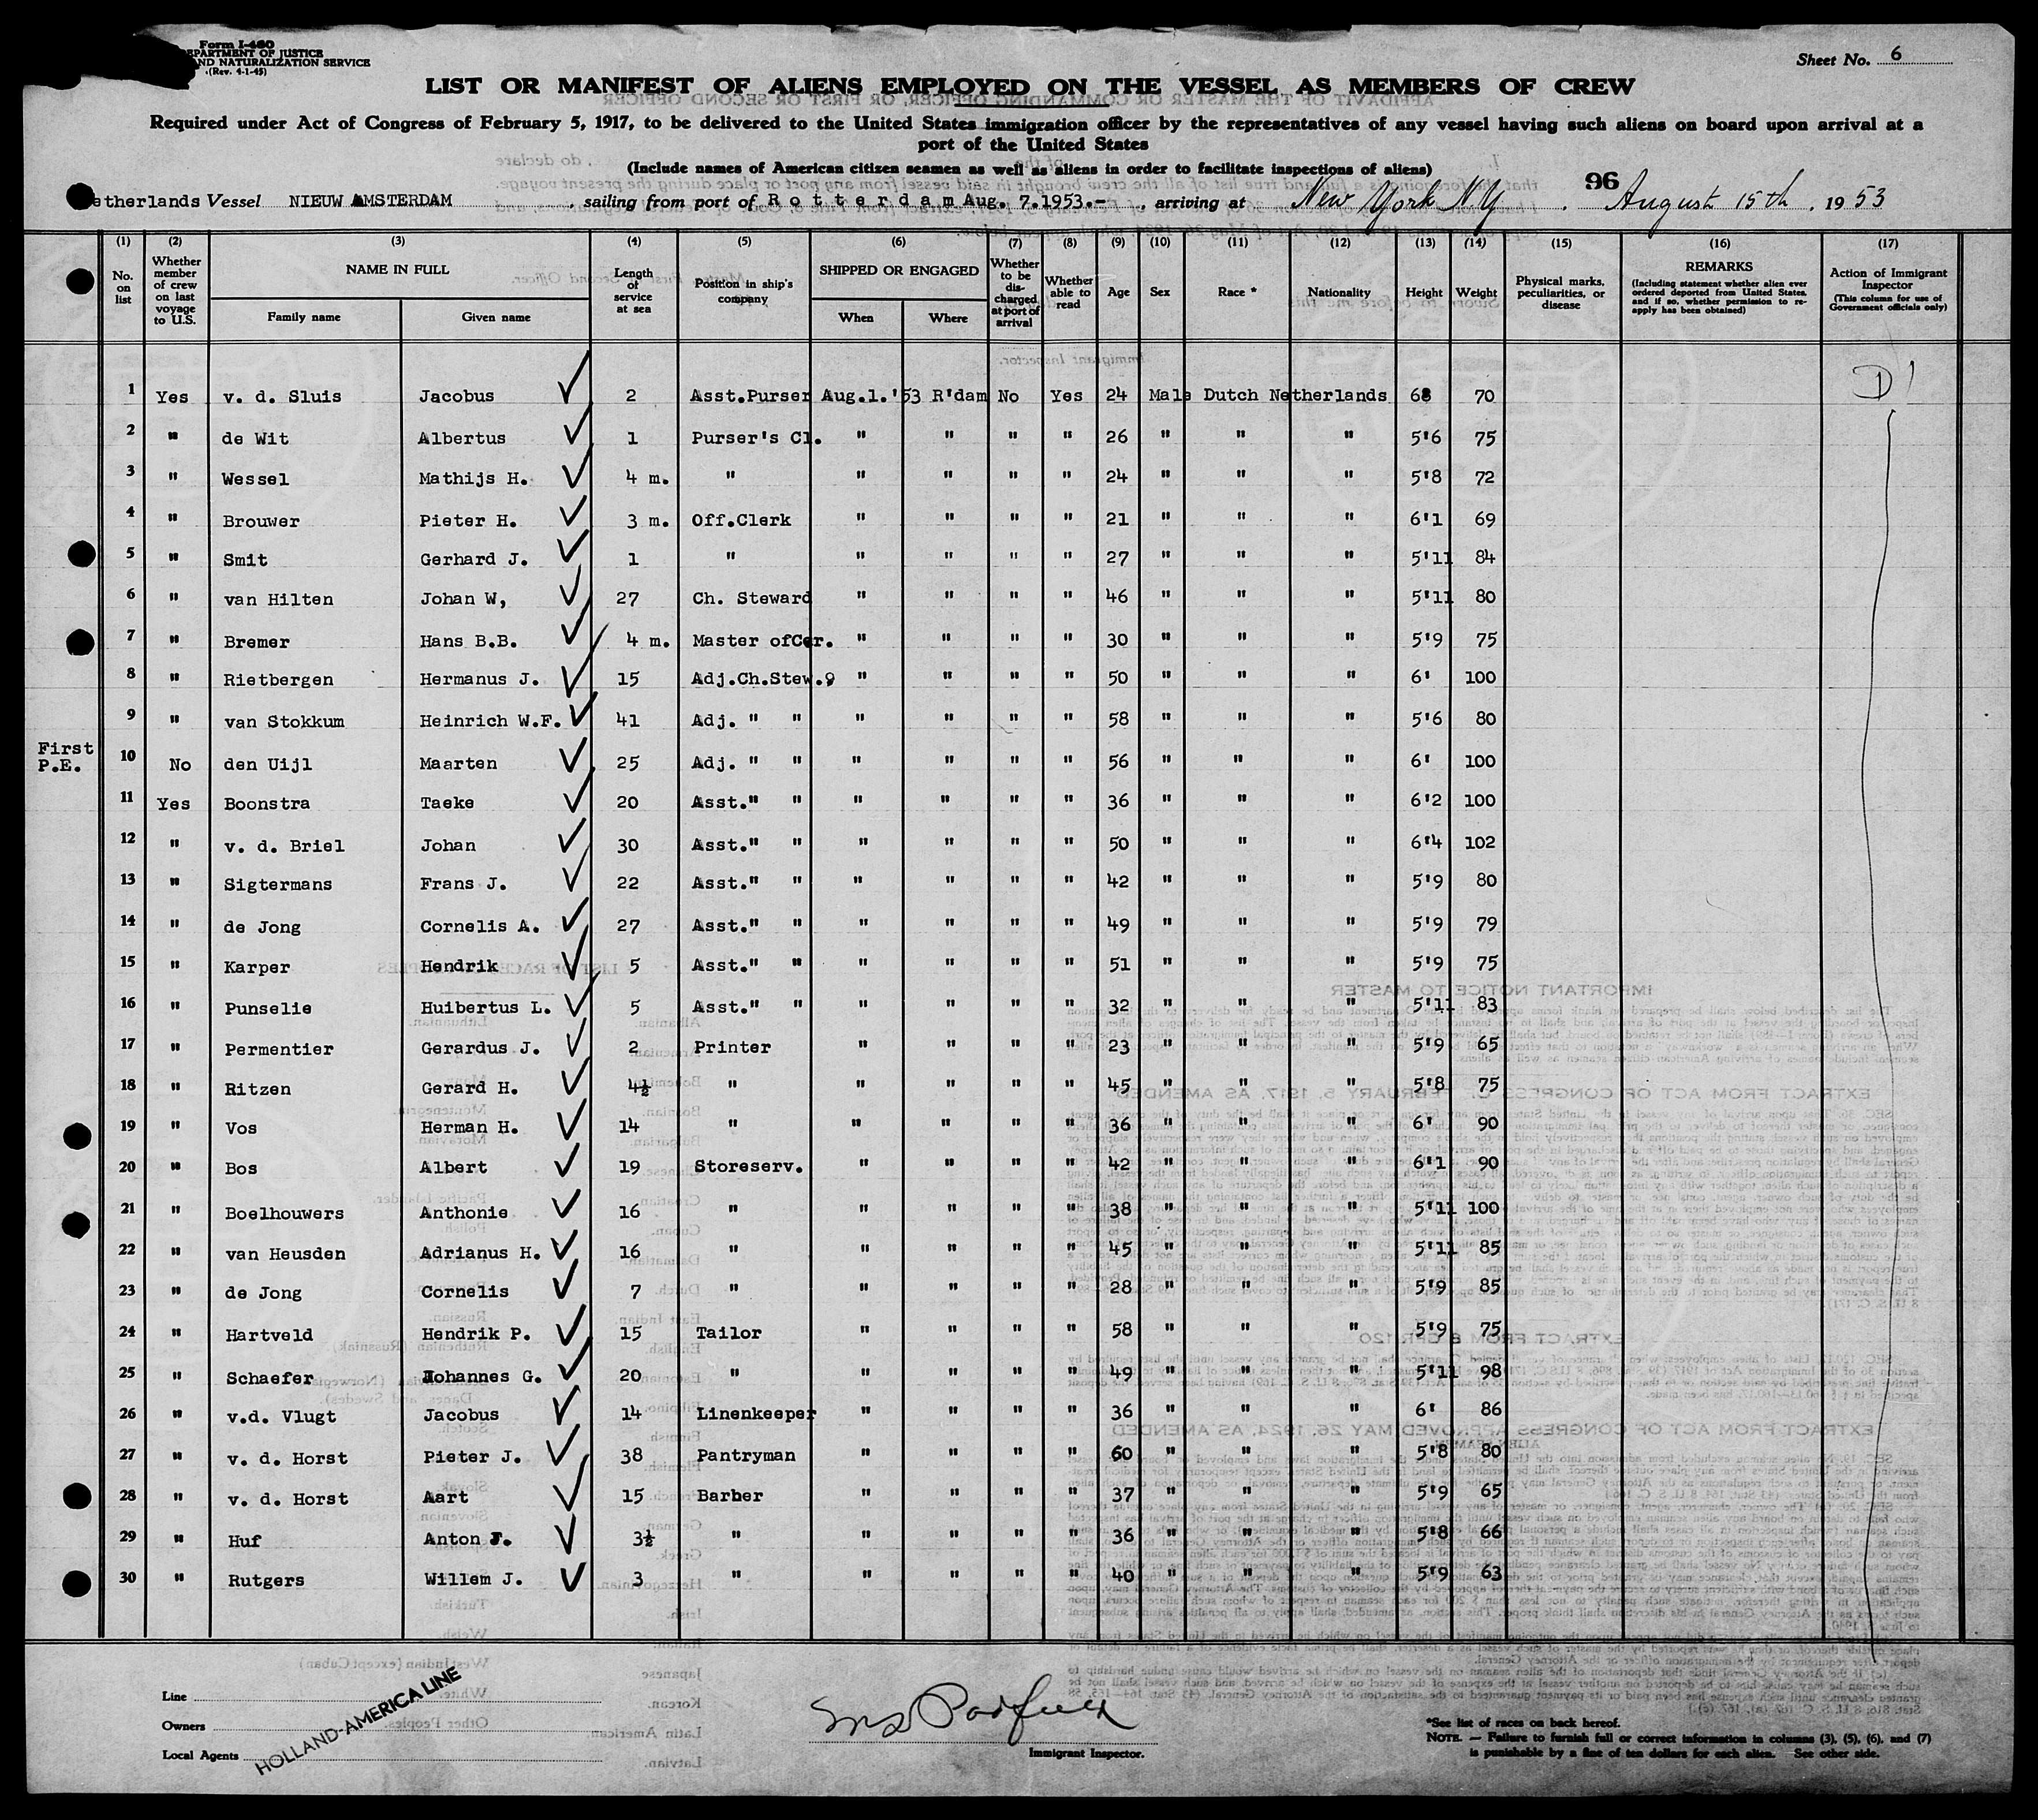 Form I-460
DEPARTMENT OF JUSTICE
AND NATURALIZATION SERVICE
(Rev. 4-1-45)
Sheet No. 6
LIST OR MANIFEST OF ALIENS EMPLOYED ON THE VESSEL AS MEMBERS OF CREW
Required under Act of Congress of February 5, 1917, to be delivered to the United States immigration officer by the representatives of any vessel having such aliens on board upon arrival at a
port of the United States
(Include names of American citizen seamen as well as aliens in order to facilitate inspections of aliens)
96
etherlands Vessel NIEUW AMSTERDAM, sailing from port of Rotterdam Aug. 7.1953.-, arriving at New York N.Y. August 15th, 1953
(1) No. on list (2) Whether member of crew on last voyage to U.S. (3) NAME IN FULL Family name Given name (4) Length of service at sea (5) Position in ship's company (6) SHIPPED OR ENGAGED When Where (7) Whether to be discharged at port of arrival (8) Whether able to read (9) Age (10) Sex (11) Race * (12) Nationality (13) Height (14) Weight (15) Physical marks, peculiarities, or disease (16) REMARKS (Including statement whether alien ever ordered deported from United States, and if so, whether permission to reapply has been obtained) (17) Action of Immigrant Inspector (This column for use of Government officials only)
1 Yes v. d. Sluis Jacobus 2 Asst.Purser Aug.1.'53 R'dam No Yes 24 Male Dutch Netherlands 68 70 D
2 " de Wit Albertus 1 Purser's Cl. " " " " 26 " " " 5'6 75
3 " Wessel Mathijs H. 4 m. " " " " " 24 " " " 5'8 72
4 " Brouwer Pieter H. 3 m. Off.Clerk " " " " 21 " " " 6'1 69
5 " Smit Gerhard J. 1 " " " " " 27 " " " 5'11 84
6 " van Hilten Johan W, 27 Ch. Steward " " " " 46 " " " 5'11 80
7 " Bremer Hans B.B. 4 m. Master ofCer. " " " " 30 " " " 5'9 75
8 " Rietbergen Hermanus J. 15 Adj.Ch.Stew.9 " " " " 50 " " " 6' 100
9 " van Stokkum Heinrich W.F. 41 Adj. " " " " " " 58 " " " 5'6 80
First P.E. 10 No den Uijl Maarten 25 Adj. " " " " " " 56 " " " 6' 100
11 Yes Boonstra Taeke 20 Asst." " " " " " 36 " " " 6'2 100
12 " v. d. Briel Johan 30 Asst." " " " " " 50 " " " 6'4 102
13 " Sigtermans Frans J. 22 Asst." " " " " " 42 " " " 5'9 80
14 " de Jong Cornelis A. 27 Asst." " " " " " 49 " " " 5'9 79
15 " Karper Hendrik 5 Asst." " " " " " 51 " " " 5'9 75
16 " Punselie Huibertus L. 5 Asst." " " " " " 32 " " " 5'11 83
17 " Permentier Gerardus J. 2 Printer " " " " 23 " " " 5'9 65
18 " Ritzen Gerard H. 4½ " " " " " 45 " " " 5'8 75
19 " Vos Herman H. 14 " " " " " 36 " " " 6' 90
20 " Bos Albert 19 Storeserv. " " " " 42 " " " 6'1 90
21 " Boelhouwers Anthonie 16 " " " " " 38 " " " 5'11 100
22 " van Heusden Adrianus H. 16 " " " " " 45 " " " 5'11 85
23 " de Jong Cornelis 7 " " " " " 28 " " " 5'9 85
24 " Hartveld Hendrik P. 15 Tailor " " " " 58 " " " 5'9 75
25 " Schaefer Johannes G. 20 " " " " " 49 " " " 5'11 98
26 " v.d. Vlugt Jacobus 14 Linenkeeper " " " " 36 " " " 6' 86
27 " v. d. Horst Pieter J. 38 Pantryman " " " " 60 " " " 5'8 80
28 " v. d. Horst Aart 15 Barber " " " " 37 " " " 5'9 65
29 " Huf Anton J. 3½ " " " " " 36 " " " 5'8 66
30 " Rutgers Willem J. 3 " " " " " 40 " " " 5'9 63
Line
Owners
Local Agents
HOLLAND-AMERICA LINE
Padfield
Immigrant Inspector.
*See list of races on back hereof.
NOTE. — Failure to furnish full or correct information in columns (3), (5), (6), and (7)
is punishable by a fine of ten dollars for each alien. See other side.